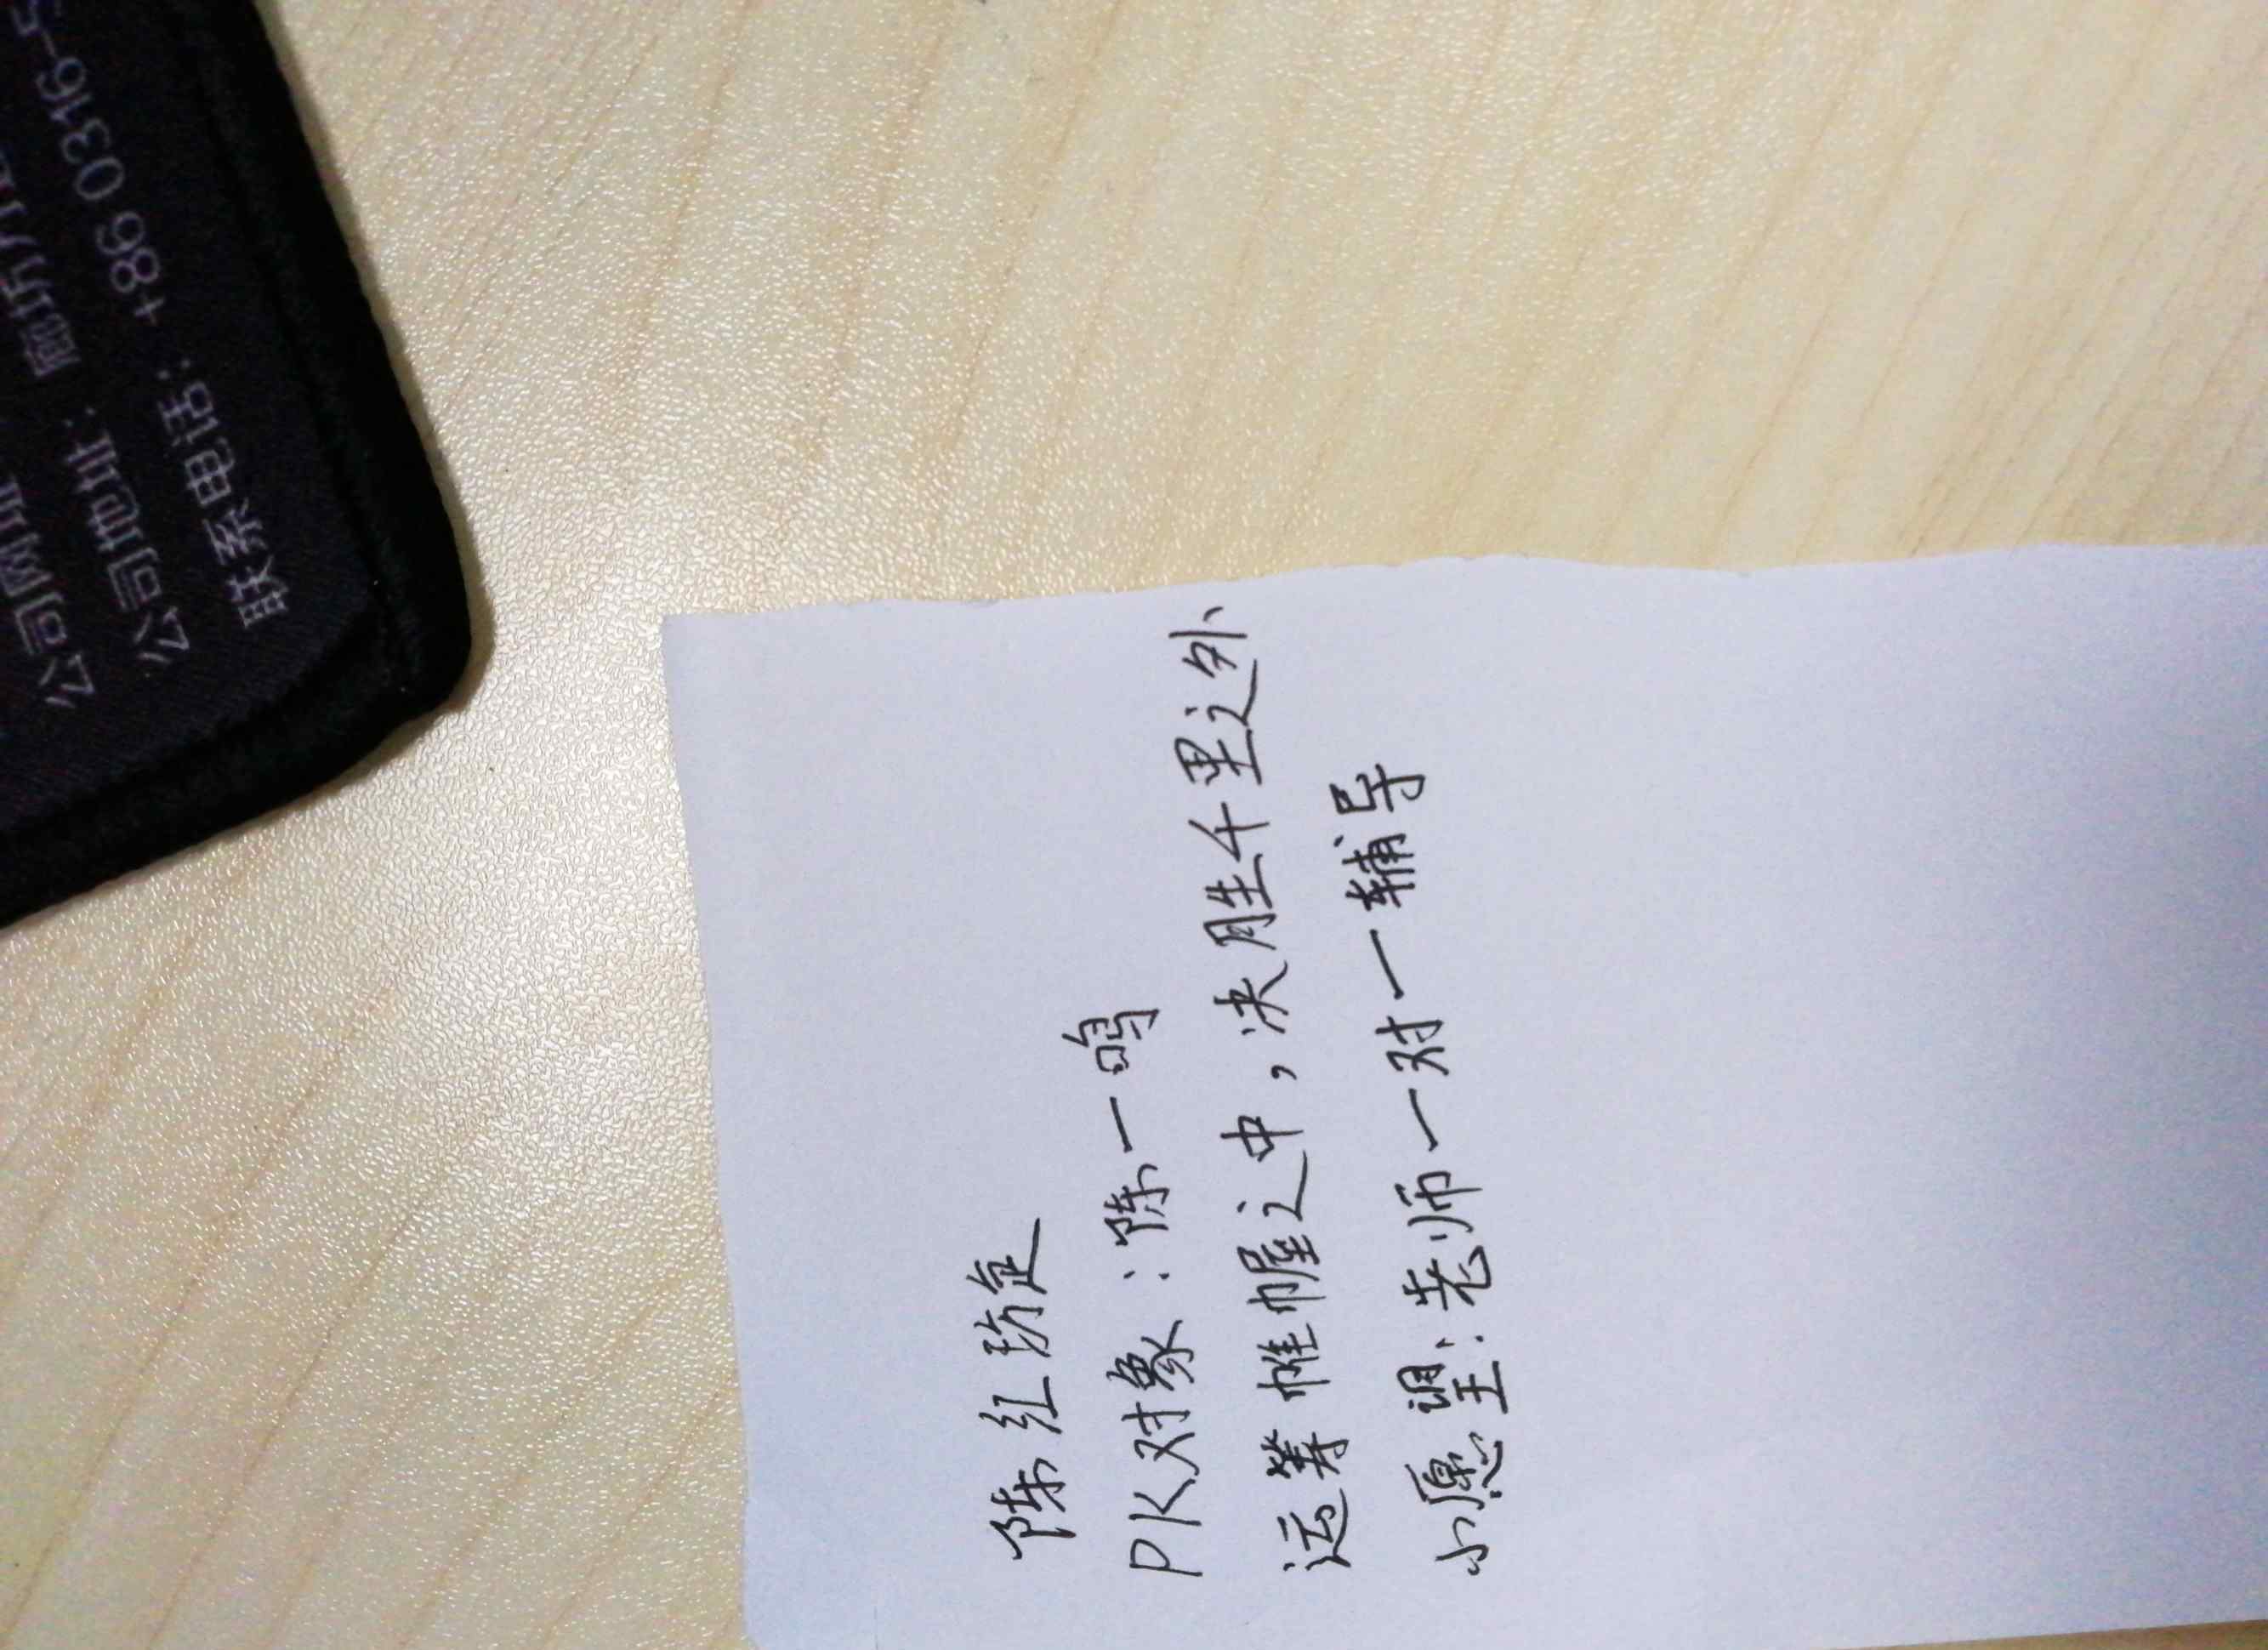 陈红玢旋
PK对象：陈一鸣
运筹帷幄之中，决胜千里之外
小愿望：老师一对一辅导
公司网址
公司地址：廊坊市
联系电话：+86 0316-5